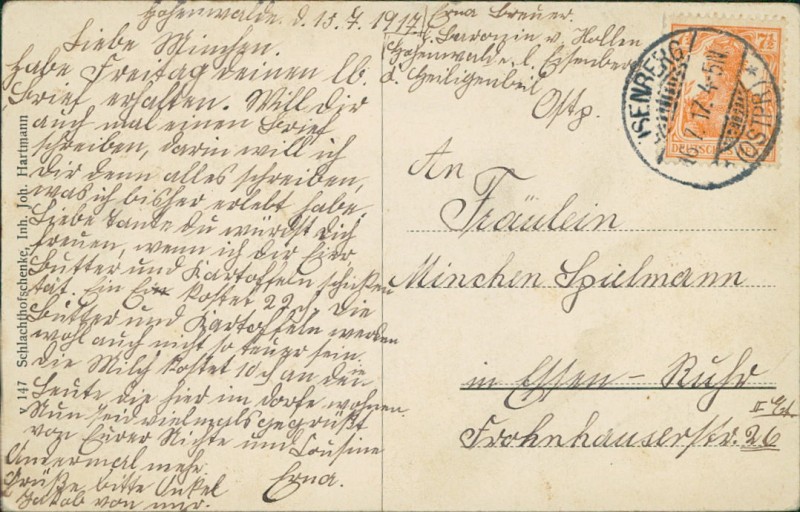 Hohenwalde. d. 15. 7. 1917.
Liebe Minchen.
Habe Freitag deinen lb.
Brief erhalten. Will dir
auch mal einen Brief
schreiben, darin will ich
dir denn alles schreiben,
was ich bisher erlebt habe.
Liebe Tante du würdst dich
freuen, wenn ich dir Eier
Butter und Kartoffeln schicken
tät. Ein Ei kostet 22 ₰. Die
Butter und Kartoffeln werden
wohl auch nicht so teuer sein.
Die Milch kostet 10 ₰ an die
Leute die hier im Dorfe wohnen.
Nun seid vielmals gegrüßt
von Eurer Nichte und Cousine
Erna.
Grüße bitte Onkel
Jakob von mir.
Erna Breuer.
b. Baronin v. Hollen
Hohenwalde b. Eisenberg
Kr. Heiligenbeil
Ostp.
An
Fräulein
Minchen Spielmann
in Essen-Ruhr
II Etg
Frohnhauserstr. 26
v 147 Schlachthofschenke, Inh. Joh. Hartmann
EISENBERG
16.7.17. 4-5N
(OSTPR.)
7½
DEUTSCHES